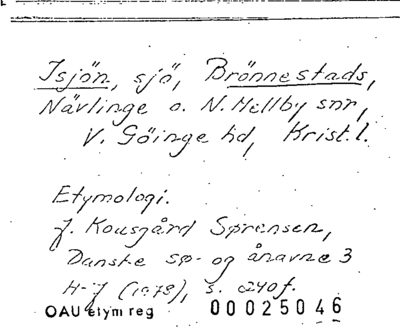 Isjön, sjö, Brönnestads,
Nävlinge o. N. Mellby snr,
V. Göinge hd, Krist. l.
Etymologi.
J. Kousgård Sørensen,
Danske sø- og ånavne 3
H-J (1978), s. 240 f.
OAU etym reg 00025046